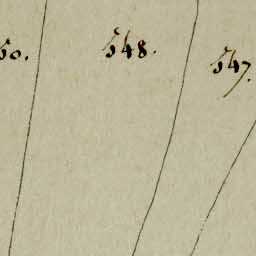 50.
548.
547.